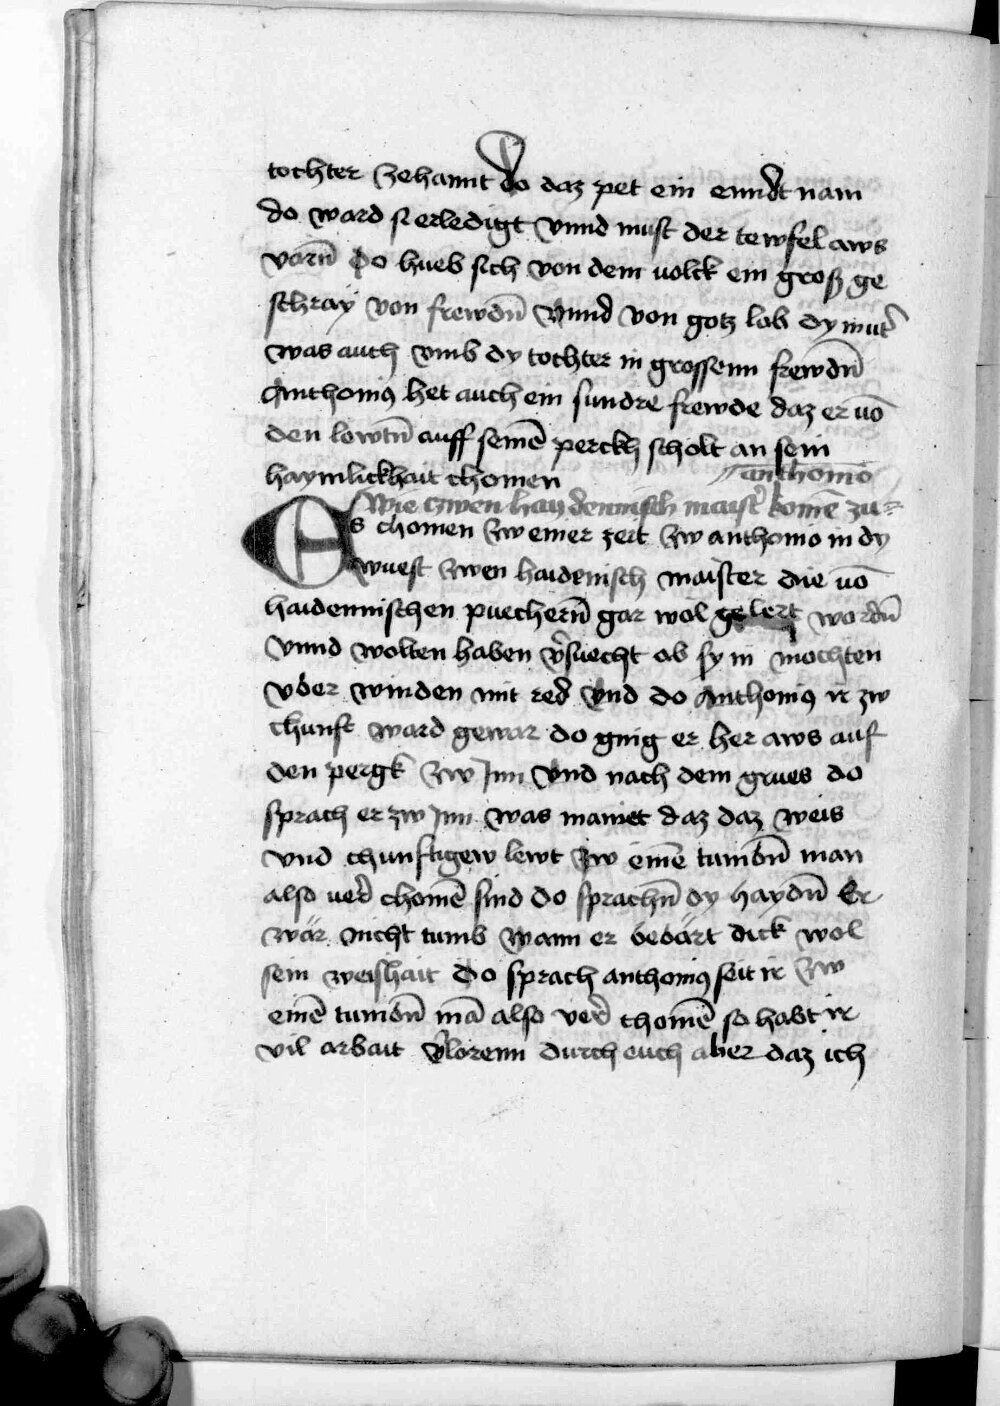 tochter Zehannt do daz pet ein enndt nam
do ward si erledigt vnnd must der tewfel aws
varn̄ Do hueb sich von dem uolck ein groß ge
schray von frewdn̄ Vnnd von gotz lob dy mut̾
was auch vmb dy tochter in grossenn frewdn̄
Anthoniꝰ het auch ein sundre frewde daz er uō
den lewtn̄ auff seinē perckh scholt an sein
haymlickhait chomen
Wie czwen haydennisch maist̾ komē zu⸗
anthonio
Es chomen Zw einer zeit Zw anthonio in dy
wuest Zwen haidenisch maister die uō
haidennischen puechern̄ gar wol gelert wordn̄
vnnd wolten haben v̾suecht ob sy in mochten
vber winden mit red Vnd do Anthoniꝰ ir zw
chunft ward gewar do ging er her aws auf
den pergk Zw Inn Vnd nach dem grues do
sprach er zw Inn was mainet daz daz weis
vnd chunftigew lewt Zw einē tumbn̄ man
also uerd chomē sind do sprachn̄ dy haydn̄ Er
wär nicht tumb wann er bebärt dick wol
sein weishait Do sprach anthoniꝰ seit ir Zw
einē tumbn̄ mā also verd chomē so habt ir
vil arbait v̾lorenn durch euch aber daz ich